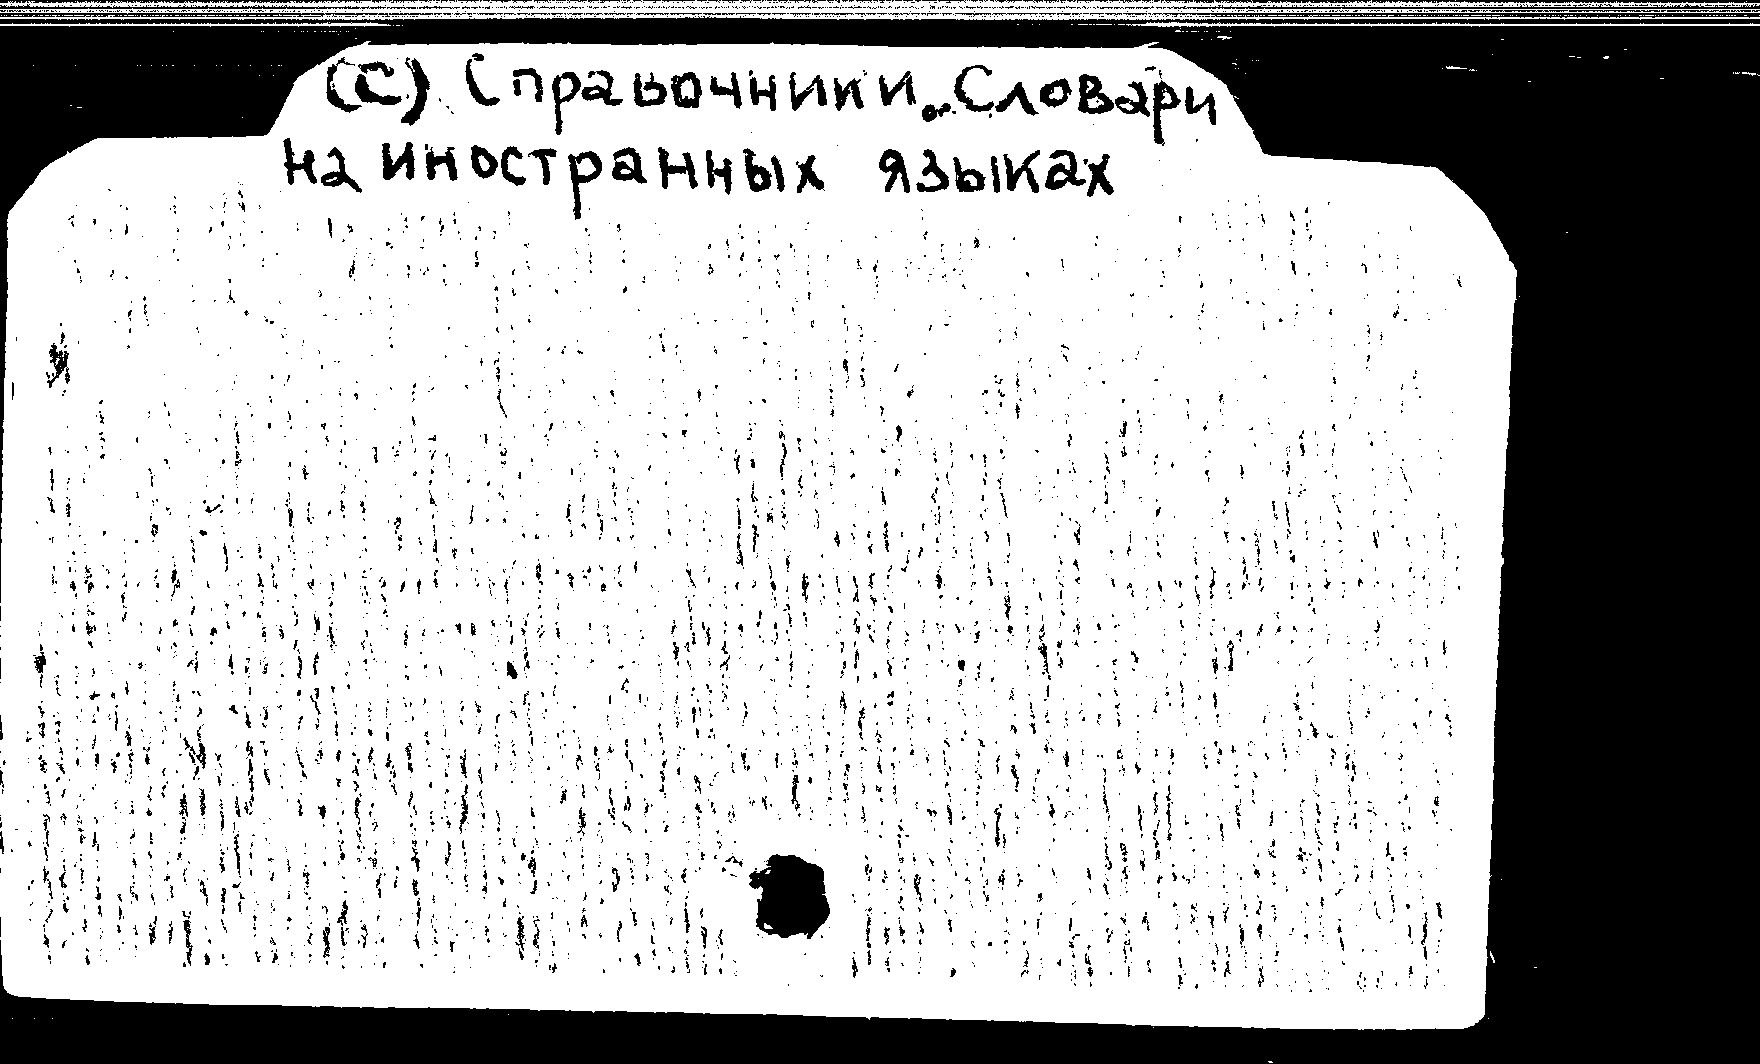 (С) Справочники. Словари
на иностранных языках